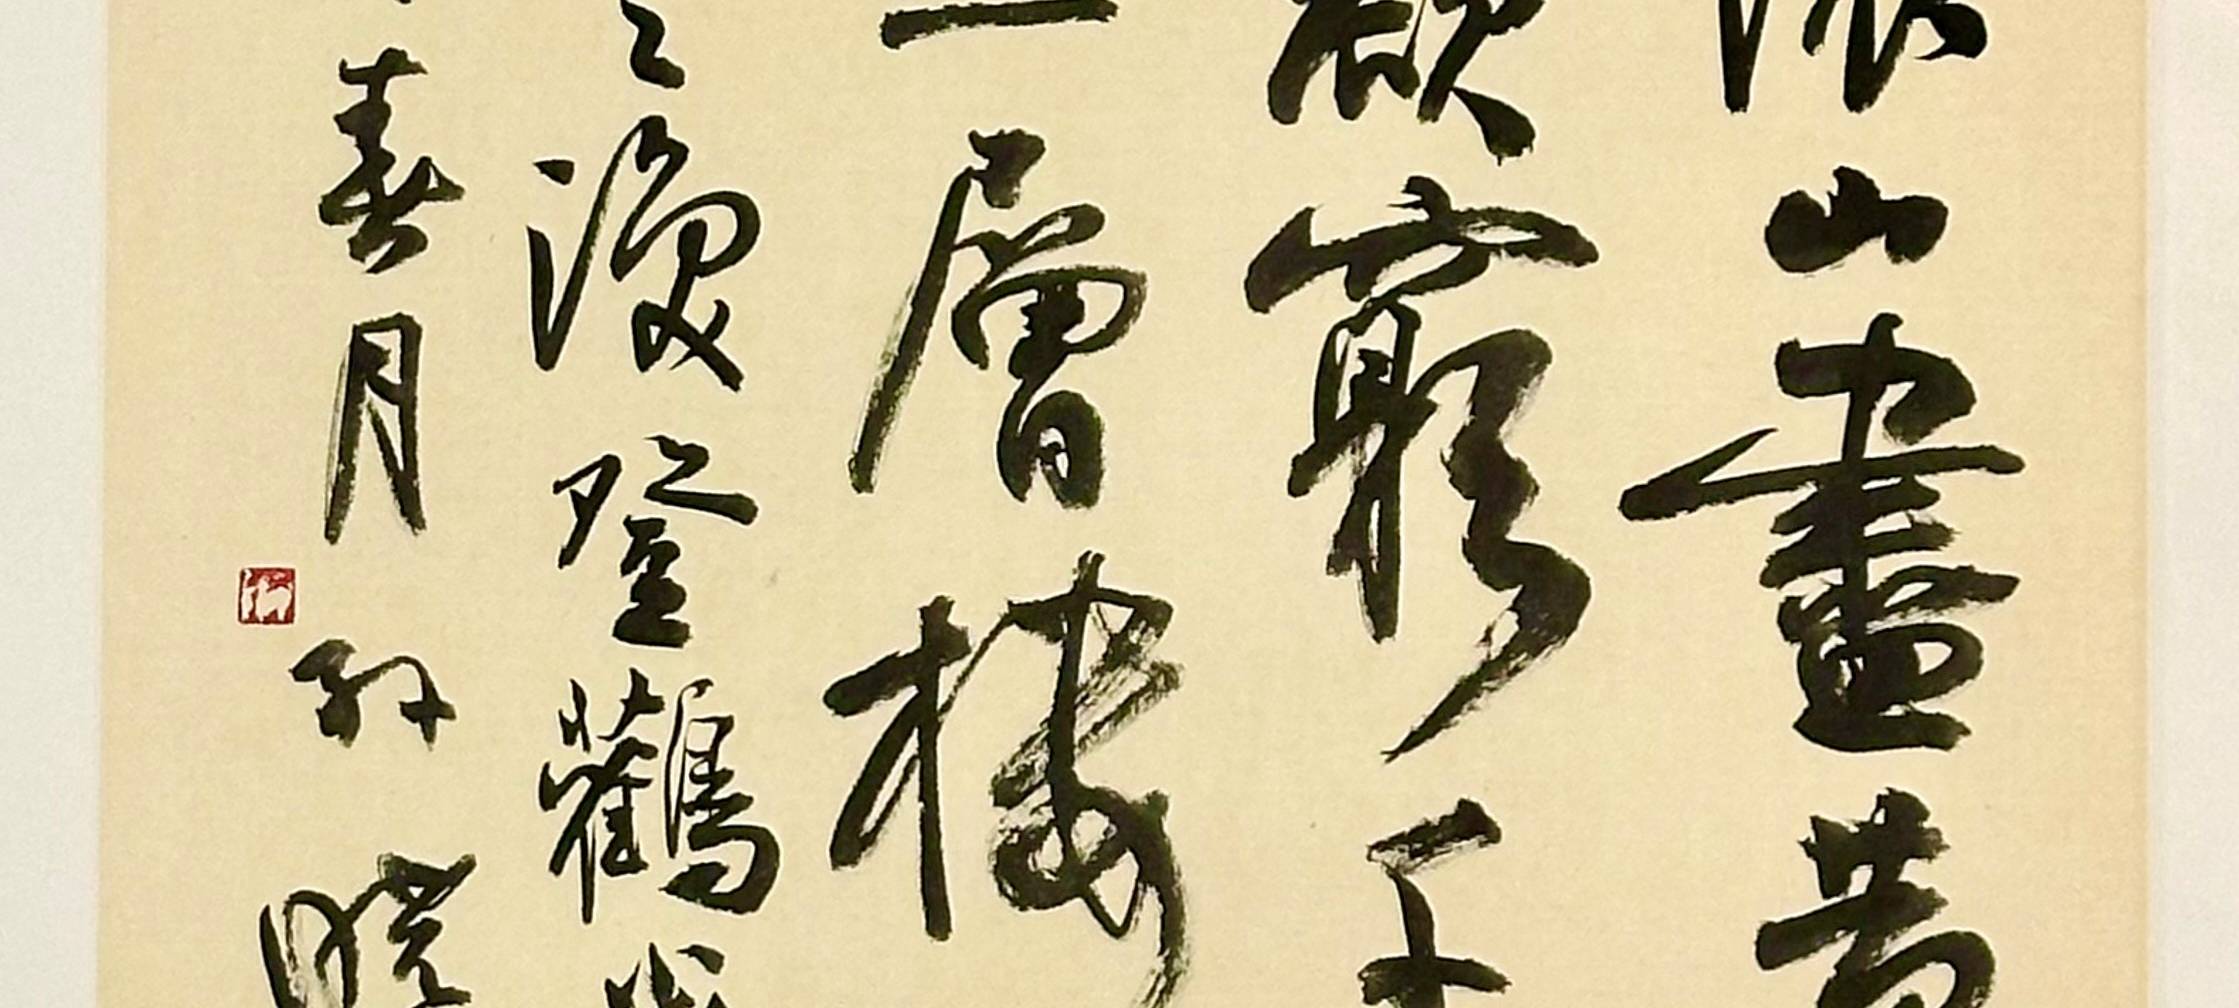 依山盡黃
欲窮千
一層樓
之渙登鸛雀
春月孫曉